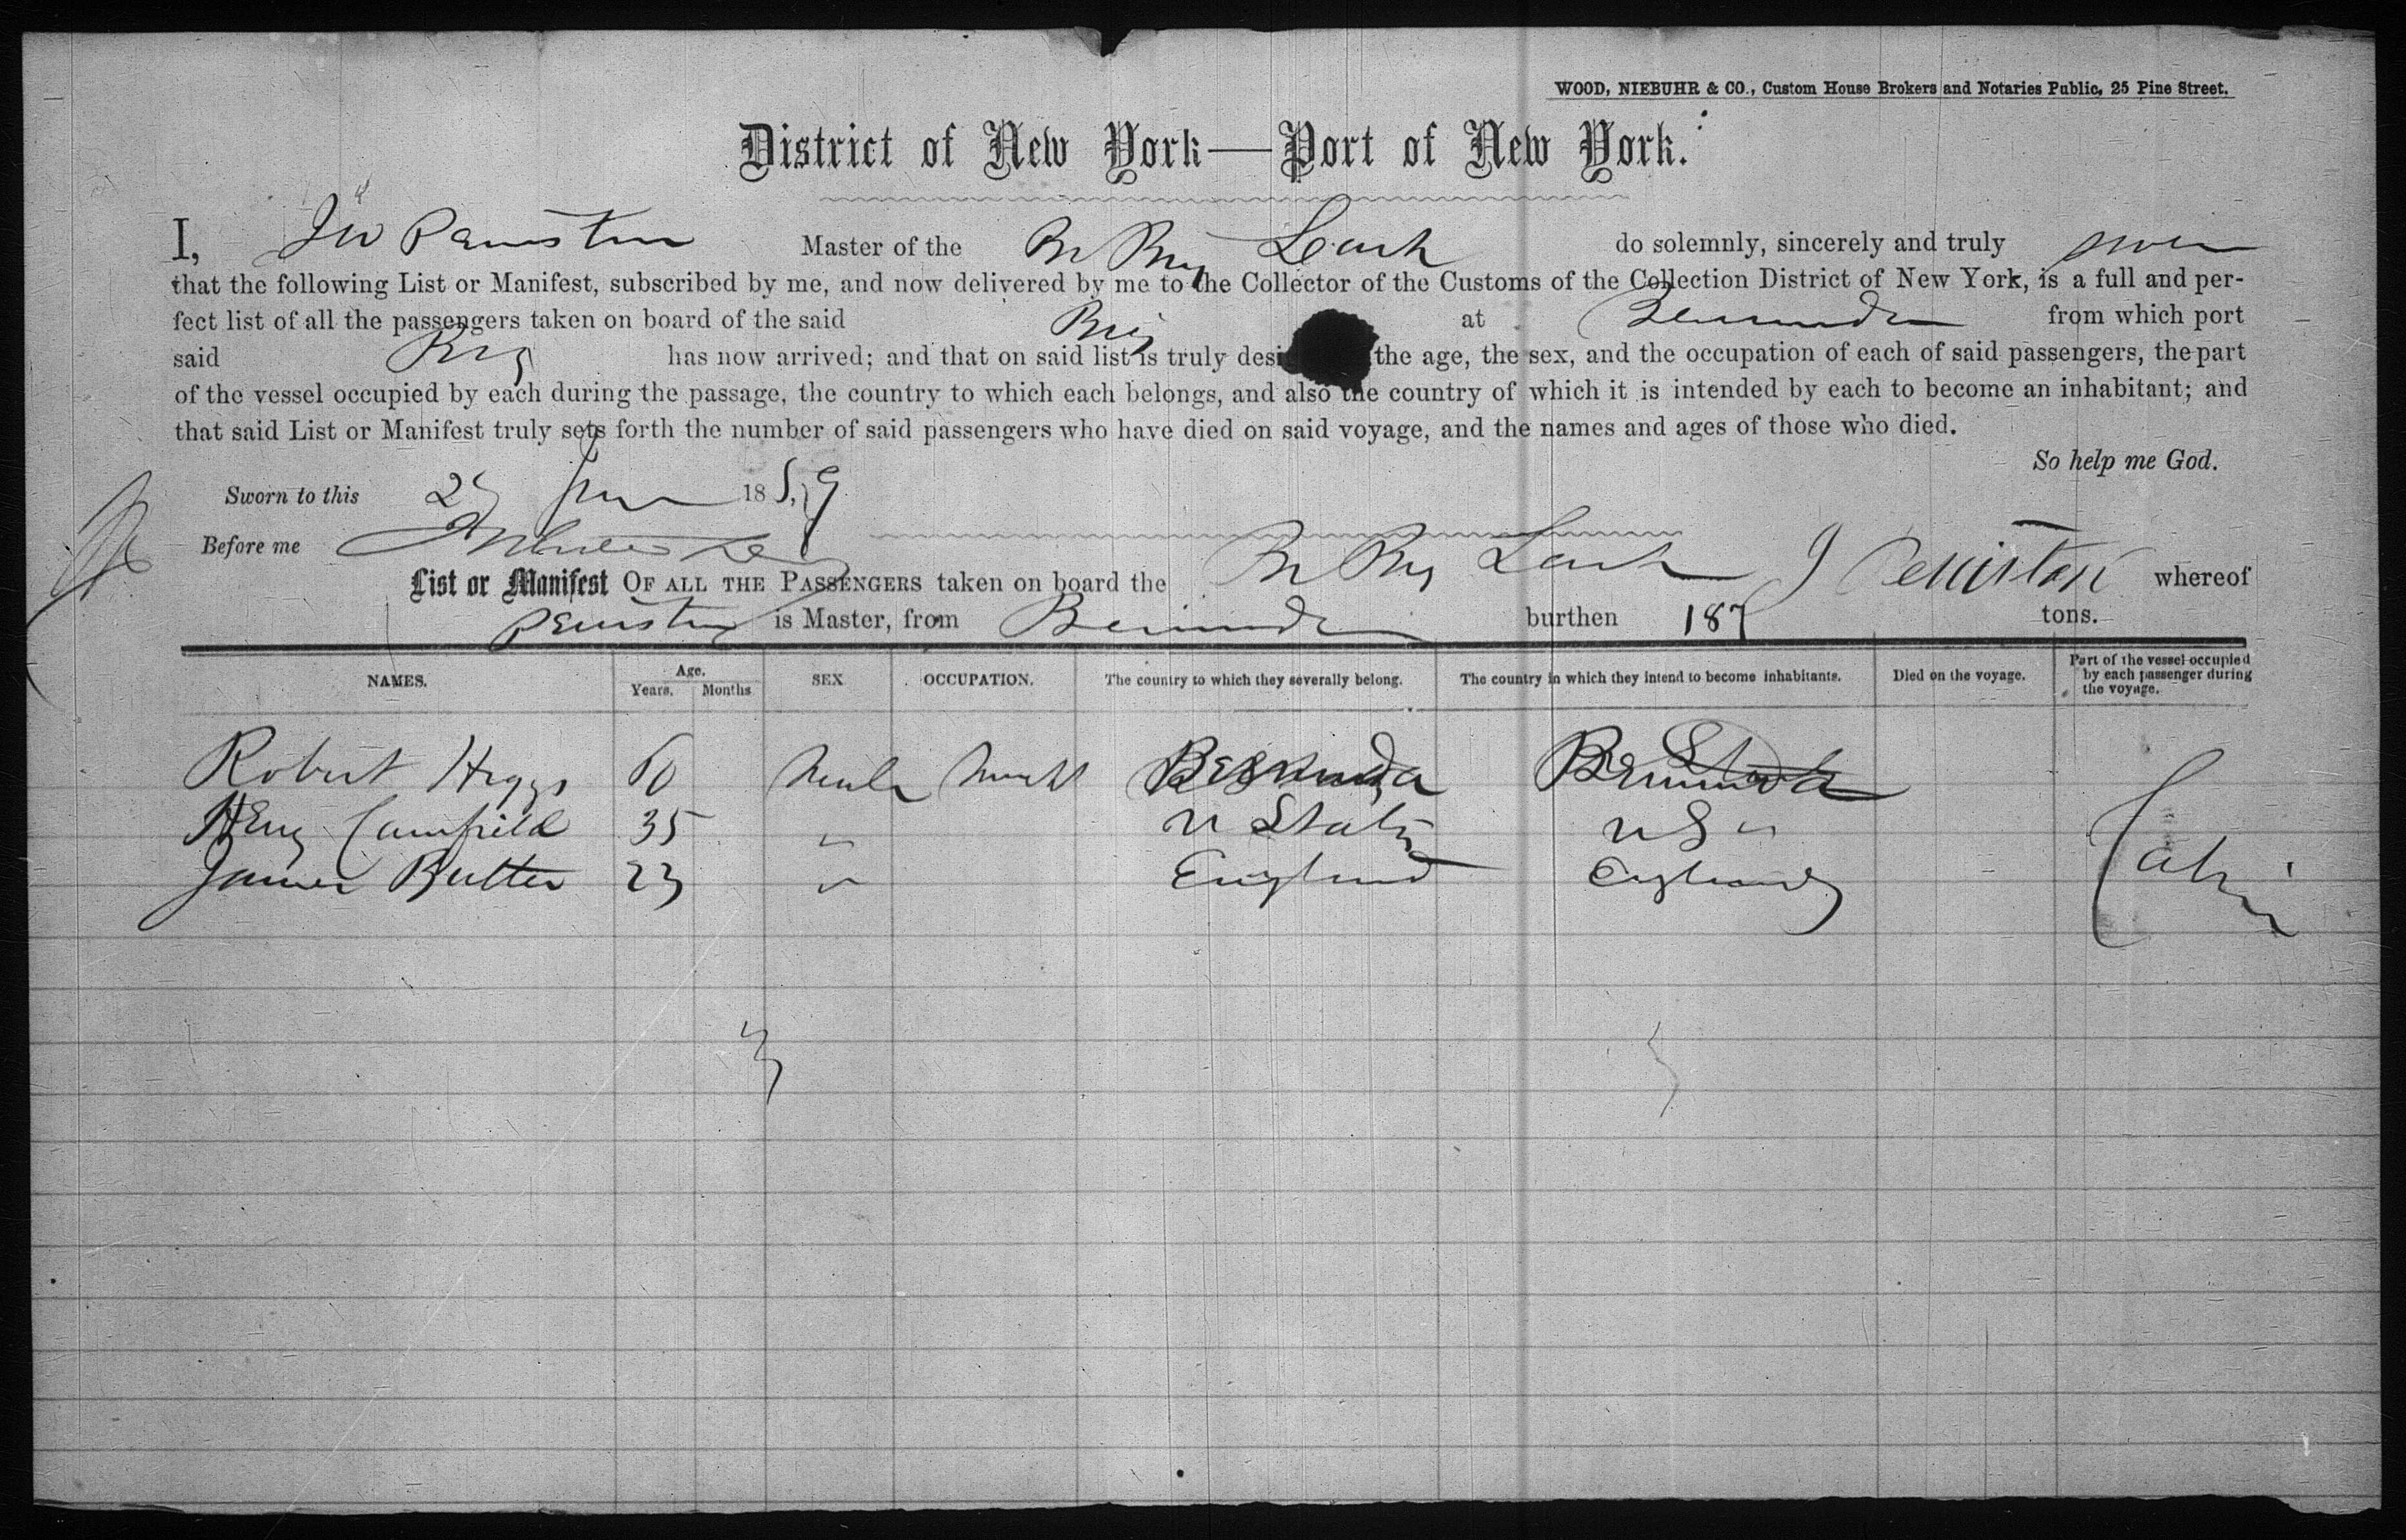 WOOD, NIEBUHR & CO., Custom House Brokers and Notaries Public, 25 Pine Street.
District of New York—Port of New York.
I, Jno Peniston Master of the Br Brig Leark do solemnly, sincerely and truly swear
that the following List or Manifest, subscribed by me, and now delivered by me to the Collector of the Customs of the Collection District of New York, is a full and per-
fect list of all the passengers taken on board of the said Brig at Bermuda from which port
said Brig has now arrived; and that on said list is truly desi the age, the sex, and the occupation of each of said passengers, the part
of the vessel occupied by each during the passage, the country to which each belongs, and also the country of which it is intended by each to become an inhabitant; and
that said List or Manifest truly sets forth the number of said passengers who have died on said voyage, and the names and ages of those who died.
So help me God.
Sworn to this 25 June 1859
Before me
List or Manifest OF ALL THE PASSENGERS taken on board the Br Brig J Peniston whereof
Peniston is Master, from Bermuda burthen 187 tons.
NAMES. Age. Years. Months SEX OCCUPATION. The country to which they severally belong. The country in which they intend to become inhabitants. Died on the voyage. Part of the vessel occupied by each passenger during the voyage.
Robert Higgs 60 Male Bermuda Bermuda
Heny Camfield 35 " U States U S "
James Butter 23 " England England Cabin